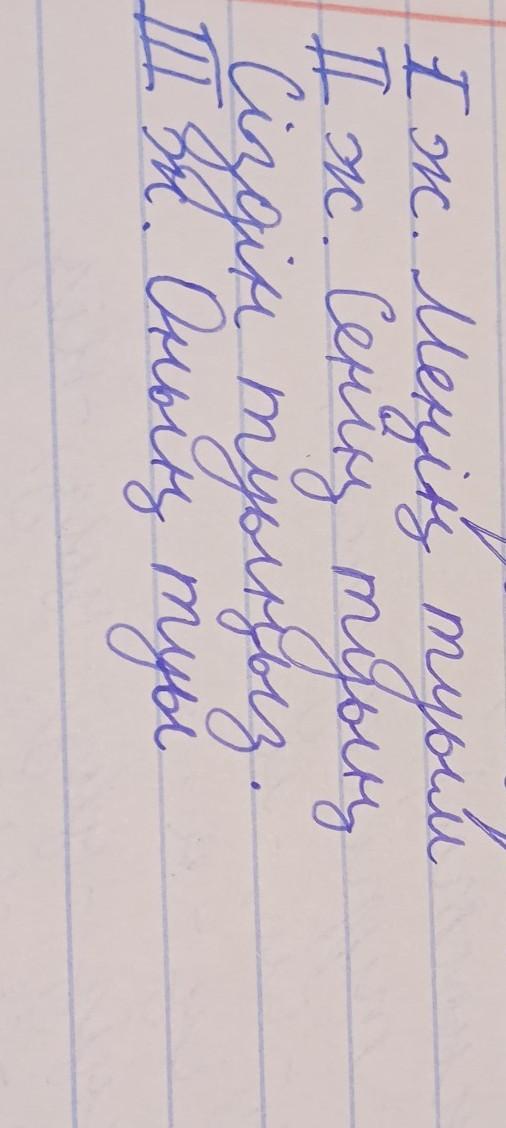 I ж. Менің туым
II ж. Сенің туың
Сіздің туыңыз.
III ж. Оның туы